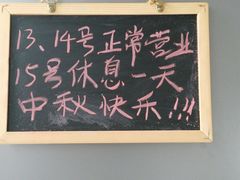 13、14号正常营业
15号休息一天
中秋快乐!!!